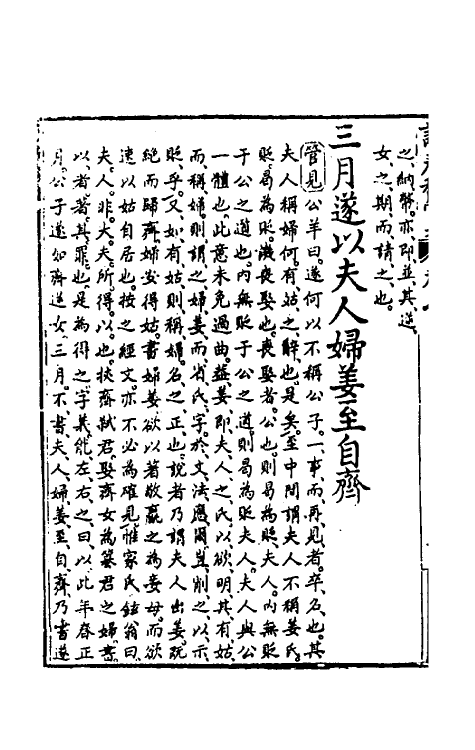 之納幣亦即並其逆
女之期而請之也
三月遂以夫人婦姜至自齊
管見公羊曰遂何以不稱公子一事而再見者卒名也其
夫人稱婦何有姑之辭也是矣至中間謂夫人不稱姜氏
貶曷為貶譏喪娶也喪娶者公也則曷為貶夫人內無貶
于公之道也內無貶于公之道則曷為貶夫人夫人與公
一體也此意未免過曲葢姜即夫人之氏以欲明其有姑
而稱婦則謂之婦姜而省氏字於文法應爾豈削之以示
貶乎又如有姑則稱婦名之正也說者乃謂夫人出姜既
絕而歸齊婦安得姑書婦姜欲以著敬嬴之為妾母而欲
速以姑自居也按之經文亦不必為確見惟家氏鉉翁曰
夫人非大夫所得以也挾齊弒君娶齊女為簒君之婦書
以者著其罪也是為得之字義能左右之曰以此年春正
月公子遂如齊逆女三月不書夫人婦姜至自齊乃書遂